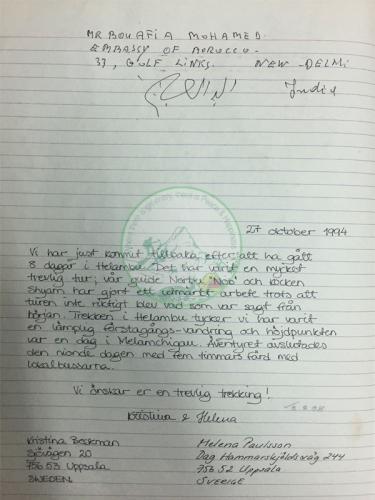 MR BOUAFIA MOHAMED.
EMBASSY OF MOROCCO -
33, GOLF LINKS. NEW-DELHI
India
27 oktober 1994
Vi har just kommit tillbaka efter att ha gått
8 dagar i Helambu. Det har varit en mycket
trevlig tur; vår guide Norbu "Nob" och kocken
Shyam har gjort ett utmärkt arbete trots att
turen inte riktigt blev vad som var sagt från
början. Trekken i Helambu tycker vi har varit
en lämplig förstagångs-vandring och höjdpunkten
var en dag i Melamchigau. Äventyret avslutades
den nionde dagen med fem timmars färd med
lokalbussarna.
Vi önskar er en trevlig trekking!
Kristina & Helena
Kristina Beckman
Sjövägen 20
756 53 Uppsala
SWEDEN
Helena Paulsson
Dag Hammarskjöldsväg 244
756 52 Uppsala
SVERIGE